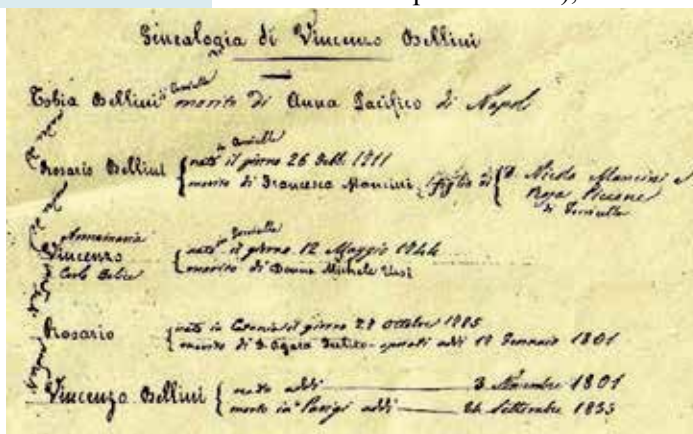 Ginealogia di Vincenzo Bellini
Tobia Bellini di Torricella marito di Anna Pacifico di Napoli
Rosario Bellini nato in Torricella il giorno 26 1711
marito di Francesca Mancini figlia di D. Nicola Mancini e
Rosa Picone
di Torricella
Vincenzo nato in Torricella il giorno 12 Maggio 1744
marito di Donna Michela
Rosario nato in Catania il giorno 29 ottobre
marito di D. Agata sposati addì 17 Gennaio 1801
Vincenzo Bellini nato addì 3 Novembre 1801
morto in Parigi addì 24 Settembre 1835